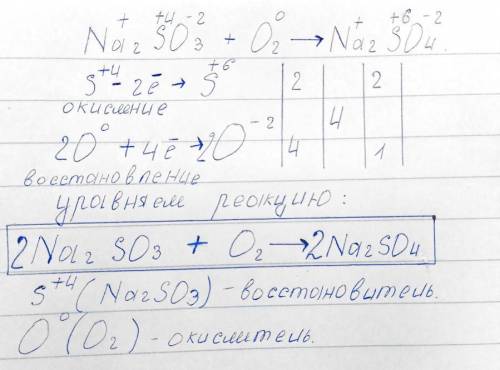 Na₂⁺ S⁺⁴O₃⁻² + O₂⁰ → Na₂⁺ S⁺⁶O₄⁻².
S⁺⁴ - 2ē → S⁺⁶ | 2 | | 2 |
окисление
4
2O⁰ + 4ē → 2O⁻² | 4 | | 1 |
восстановление
уравняем реакцию:
2Na₂SO₃ + O₂ → 2Na₂SO₄.
S⁺⁴ (Na₂SO₃) - восстановитель.
O⁰ (O₂) - окислитель.